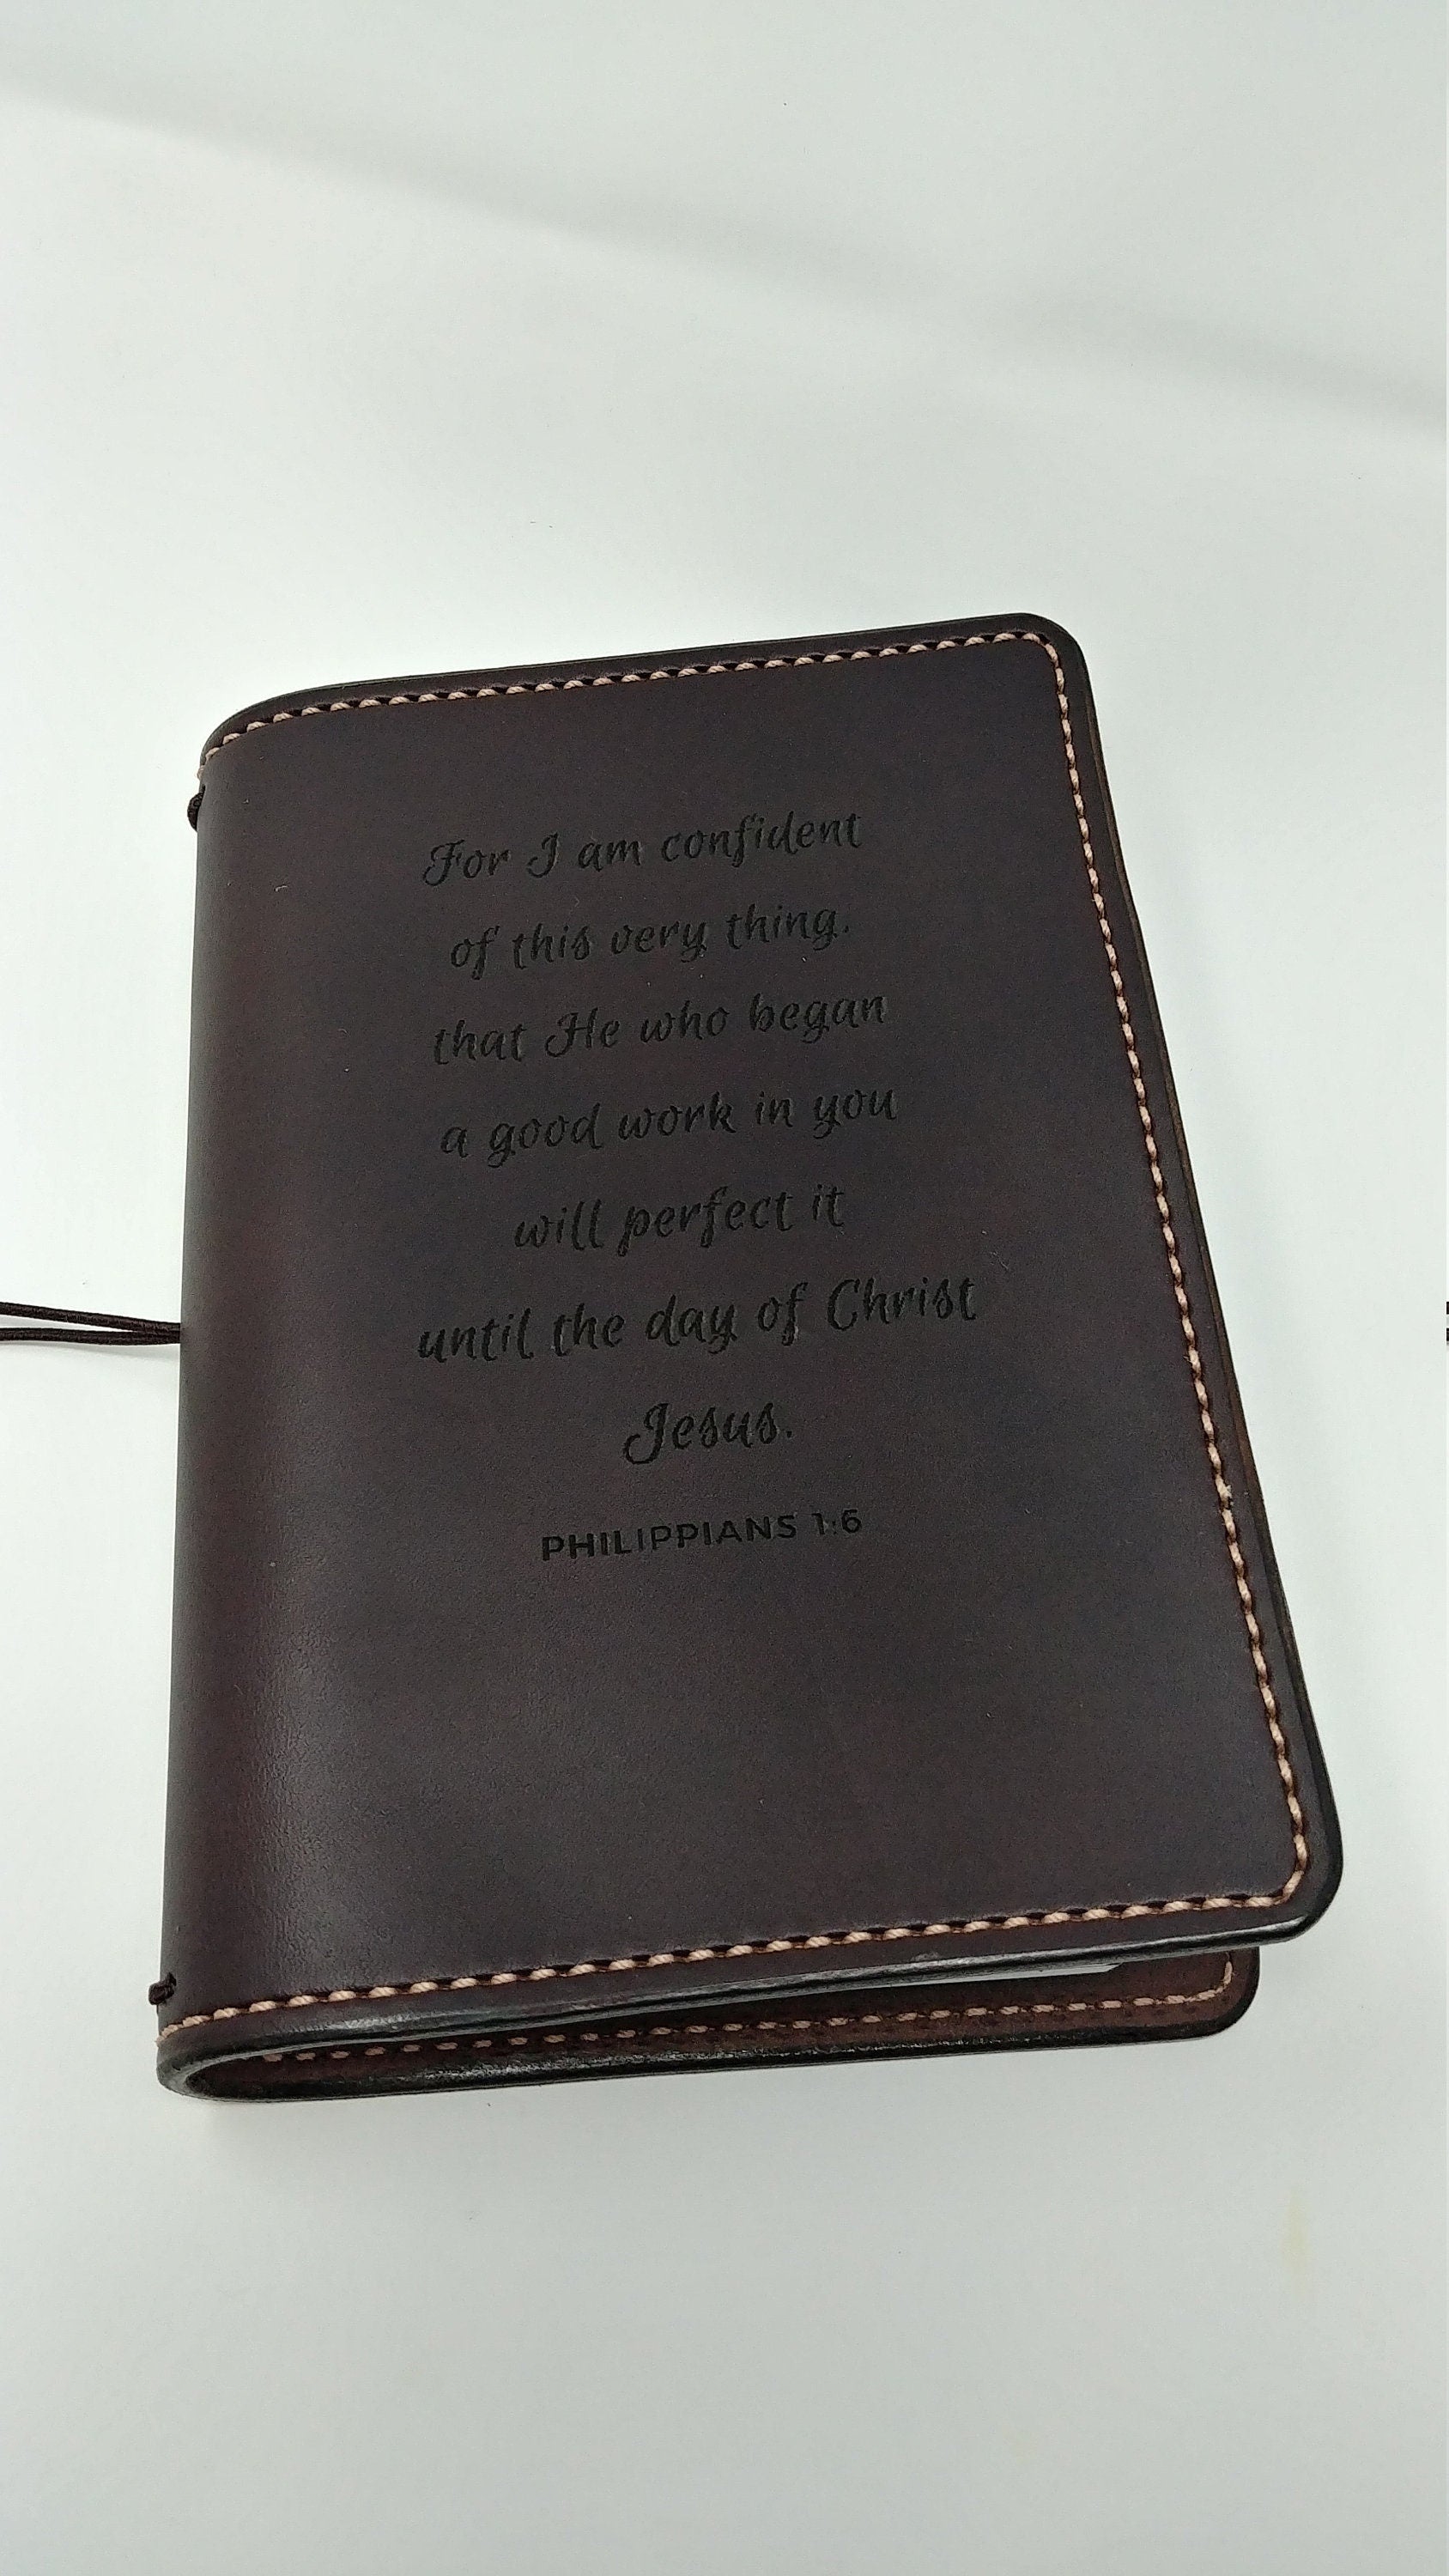 For I am confident
of this very thing,
that He who began
a good work in you
will perfect it
until the day of Christ
Jesus.
PHILIPPIANS 1:6